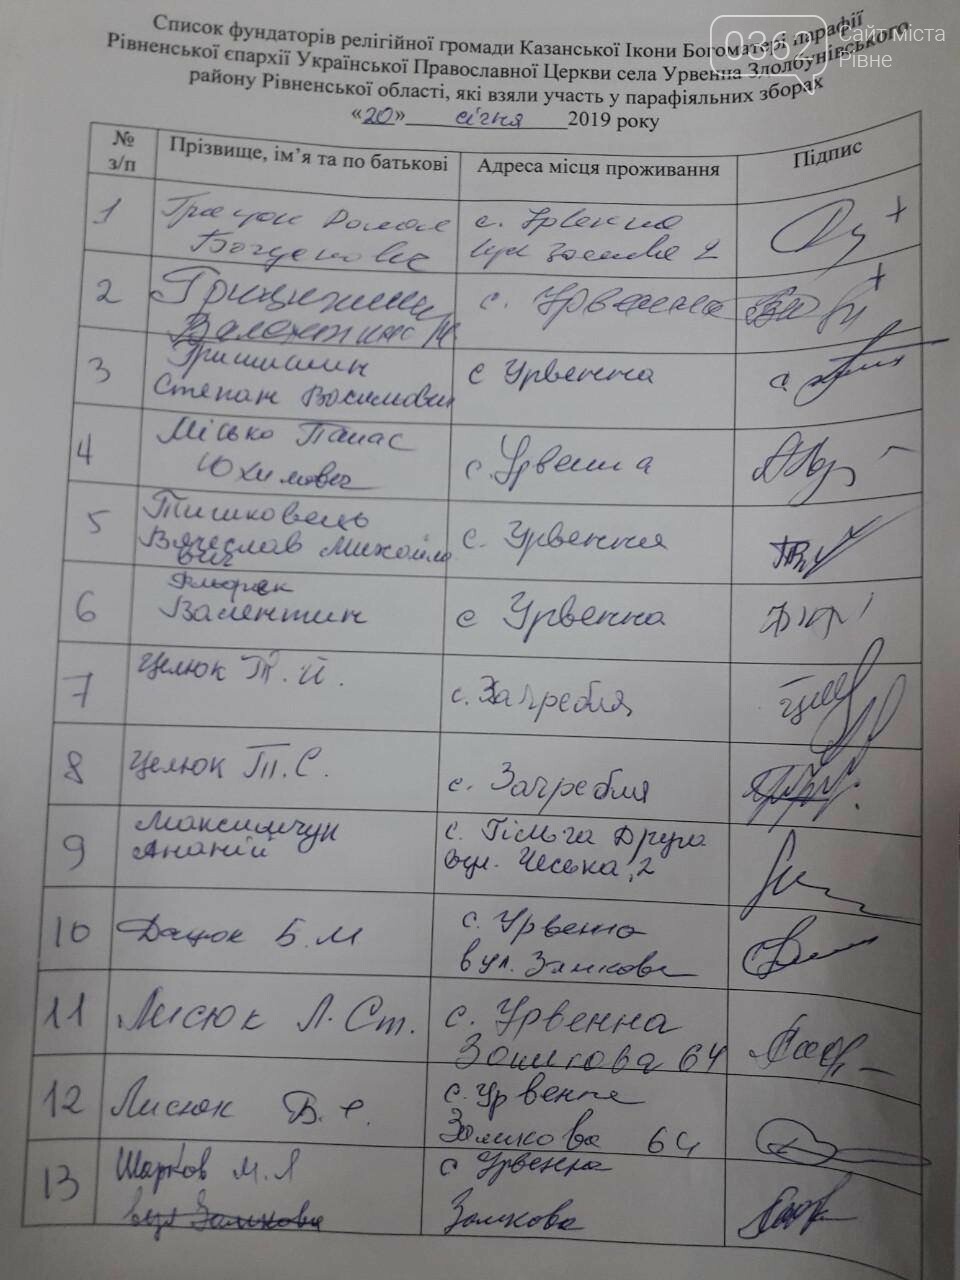 0362 Сайт міста
Рівне
Список фундаторів релігійної громади Казанської Ікони Богоматері парафії
Рівненської єпархії Української Православної Церкви села Урвенна Здолбунівського
району Рівненської області, які взяли участь у парафіяльних зборах
«20» січня 2019 року
№ з/п Прізвище, ім’я та по батькові Адреса місця проживання Підпис
1 Роман с. Урвенна
Богданович вул 2
2 с. Урвенна
Валентин М
3 Гришишин с Урвенна
Степан Васильович
4 Місько Панас с. Урвенна
Юхимович
5 Тишковець с. Урвенна
Вячеслав Михайло
вич
6 с Урвенна
Валентин
7 Целюк Т. Й. с. Загребля
8 Целюк Т. С. с. Загребля
9 Максимчук с. Гільча Друга
Ананій вул. Чеська, 2
10 Дацюк Б. М с. Урвенна
вул. Замкова
11 Лисюк Л. Ст. с. Урвенна
Замкова 64
12 Лисюк В. с. Урвенна
Замкова 64
13 Шарков М. Л с Урвенна
вул Замкова Замкова